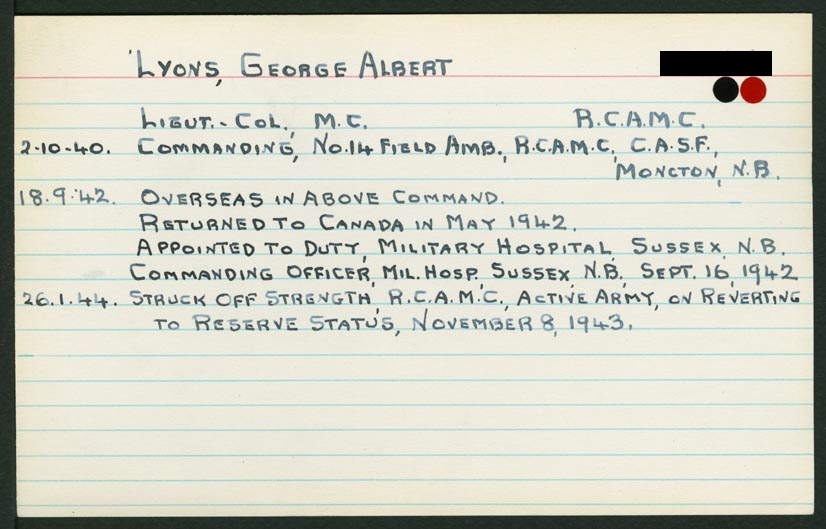 Lyons, George Albert
Lieut.-Col., M.C. R.C.A.M.C.
2-10-40. Commanding, No.14 Field Amb., R.C.A.M.C., C.A.S.F.,
Moncton, N.B.
18.9.42. Overseas in above command.
Returned to Canada in May 1942.
Appointed to duty, Military Hospital, Sussex, N.B.
Commanding Officer, Mil. Hosp. Sussex, N.B., Sept. 16, 1942
26.1.44. Struck off strength, R.C.A.M.C., Active Army, on reverting
to Reserve Status, November 8, 1943.